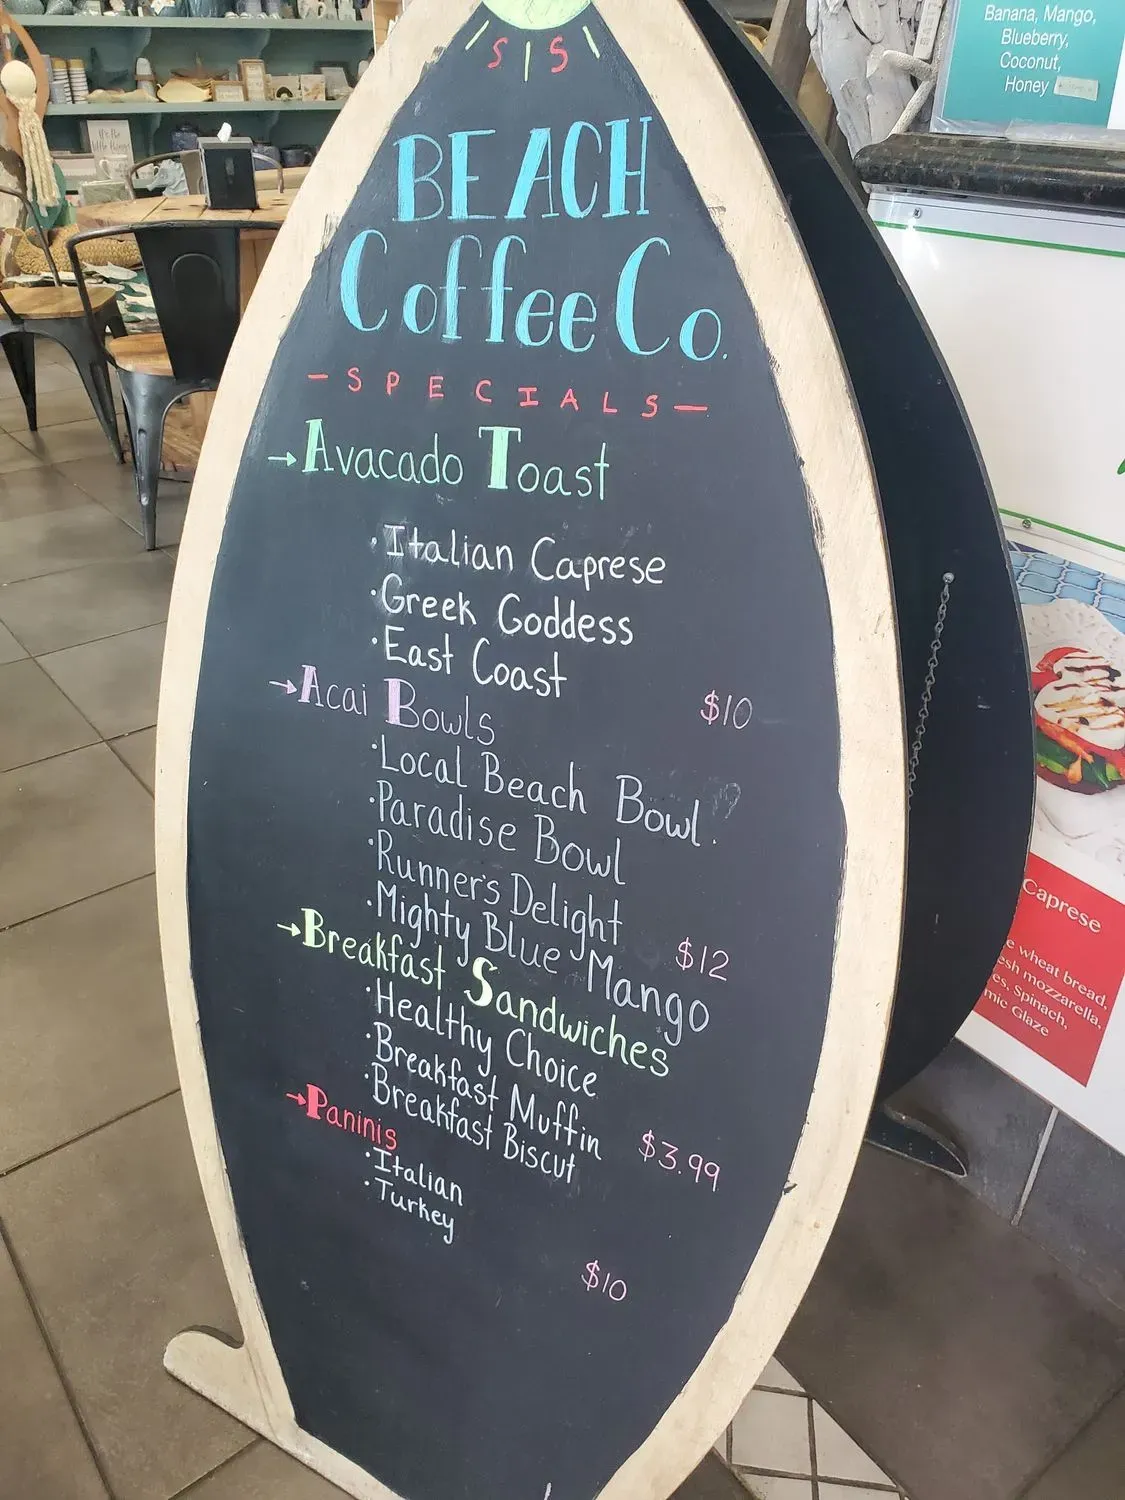 BEACH
Coffee Co.
- SPECIALS -
→ Avacado Toast
· Italian Caprese
· Greek Goddess
· East Coast
$10
→ Acai Bowls
· Local Beach Bowl.
· Paradise Bowl
· Runner's Delight
· Mighty Blue Mango
$12
→ Breakfast Sandwiches
· Healthy Choice
· Breakfast Muffin
· Breakfast Biscut
$3.99
→ Paninis
· Italian
· Turkey
$10
Banana, Mango,
Blueberry,
Coconut,
Honey
Caprese
wheat bread,
mozzarella,
Spinach,
Glaze